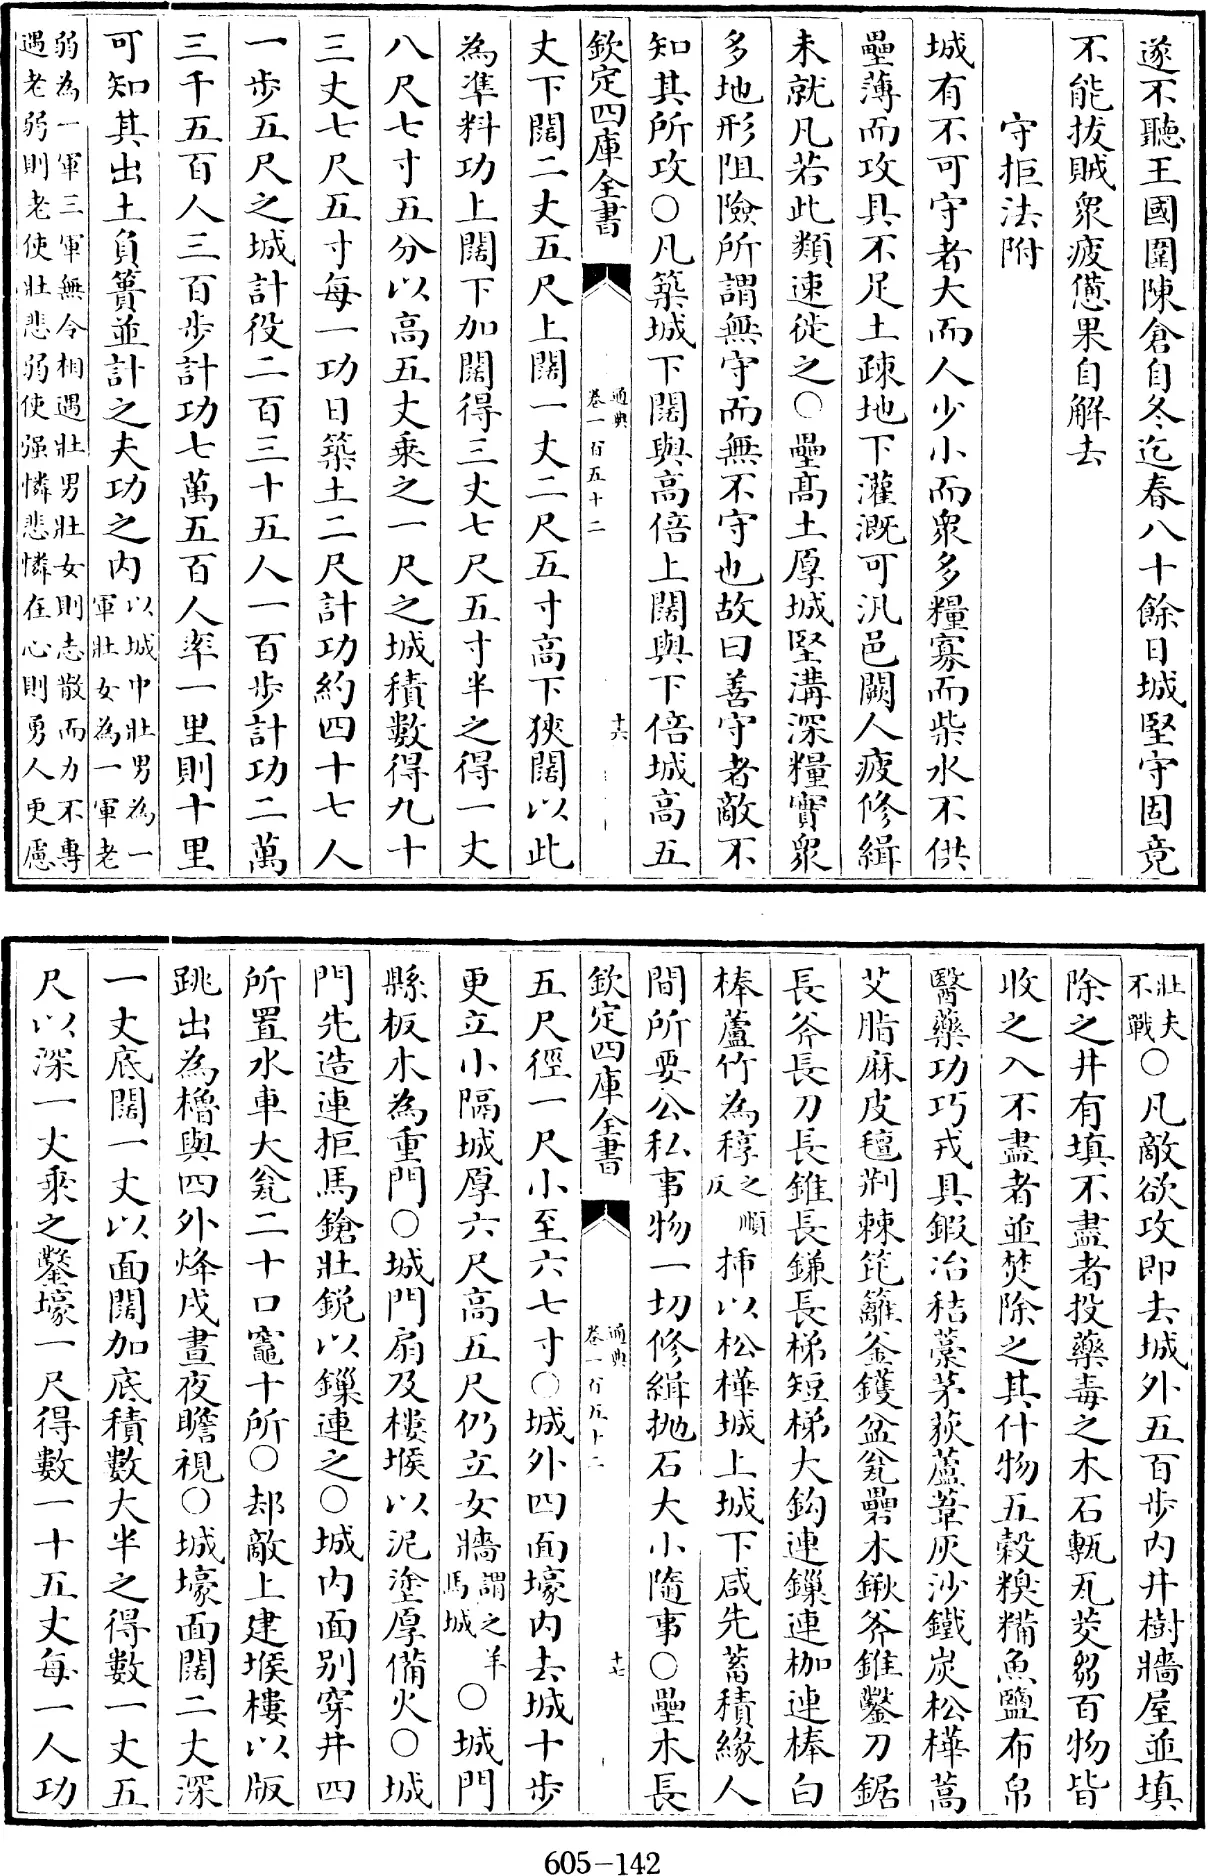 遂不聽王國圍陳倉自冬迄春八十餘日城堅守固竟
不能拔賊衆疲憊果自解去
守拒法附
城有不可守者大而人少小而衆多糧寡而柴水不供
壘薄而攻具不足土疎地下灌溉可汎邑闕人疲修緝
未就凡若此類速徙之〇壘髙土厚城堅溝深糧實衆
多地形阻險所謂無守而無不守也故曰善守者敵不
知其所攻〇凡築城下闊與高倍上闊與下倍城高五
欽定四庫全書
通典
卷一百五十二
十六
丈下闊二丈五尺上闊一丈二尺五寸高下狹闊以此
為凖料功上闊下加闊得三丈七尺五寸半之得一丈
八尺七寸五分以高五丈乗之一尺之城積數得九十
三丈七尺五寸每一功日築土二尺計功約四十七人
一步五尺之城計役二百三十五人一百步計功二萬
三千五百人三百步計功七萬五百人率一里則十里
可知其出土負簣並計之夫功之内以城中壯男為一
軍壯女為一軍老
弱為一軍三軍無令相遇壯男壯女則志散而力不專
遇老弱則老使壯悲弱使强憐悲憐在心則勇人更慮
壯夫
不戰〇凡敵欲攻即去城外五百步内井樹牆屋並填
除之井有填不盡者投藥毒之木石甎瓦茭芻百物皆
收之入不盡者並焚除之其什物五榖糗糒魚鹽布帛
醫藥功巧戎具鍜冶秸藁茅荻蘆葦灰沙鐵炭松樺蒿
艾脂麻皮氊荆棘笓籬釜鑊盆瓮礨木鍬斧錐鑿刀鋸
長斧長刀長錐長鎌長梯短梯大鈎連鏁連枷連棒白
棒蘆竹為稕之順
反揷以松樺城上城下咸先蓄積緣人
間所要公私事物一切修緝抛石大小隨事〇壘木長
欽定四庫全書
通典
卷一百五十二
十七
五尺徑一尺小至六七寸〇城外四面壕内去城十步
更立小隔城厚六尺高五尺仍立女牆謂之羊
馬城〇城門
縣板木為重門〇城門扇及樓堠以泥塗厚備火〇城
門先造連拒馬鎗壯鋭以鏁連之〇城内面别穿井四
所置水車大瓮二十口竈十所〇却敵上建堠樓以版
跳出為櫓與四外烽戍晝夜瞻視〇城壕面闊二丈深
一丈底闊一丈以面闊加底積數大半之得數一丈五
尺以深一丈乗之鑿壕一尺得數一十五丈每一人功
605-142